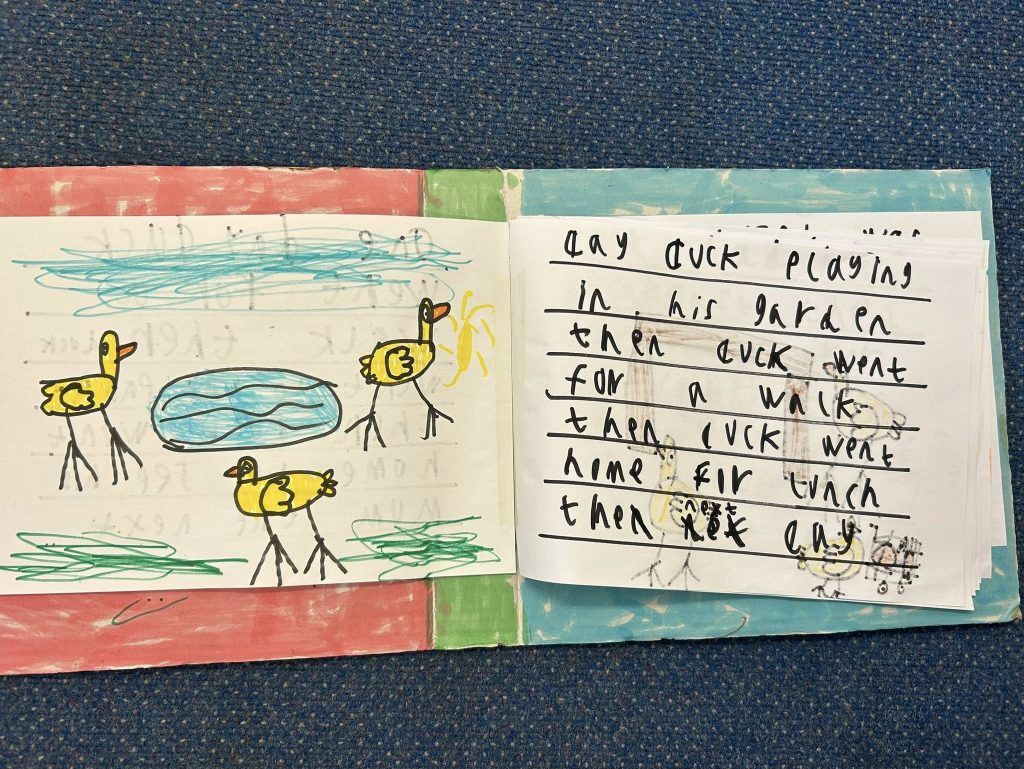 day duck playing
in his garden
then duck went
for a walk
then duck went
home for lunch
then next day